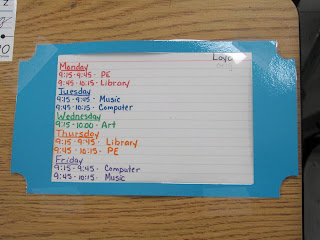 Monday
9:15-9:45 - PE
9:45-10:15 - Library
Tuesday
9:15-9:45 - Music
9:45-10:15 - Computer
Wednesday
9:15-10:00 - Art
Thursday
9:15-9:45 - Library
9:45-10:15 - PE
Friday
9:15-9:45 - Computer
9:45-10:15 - Music